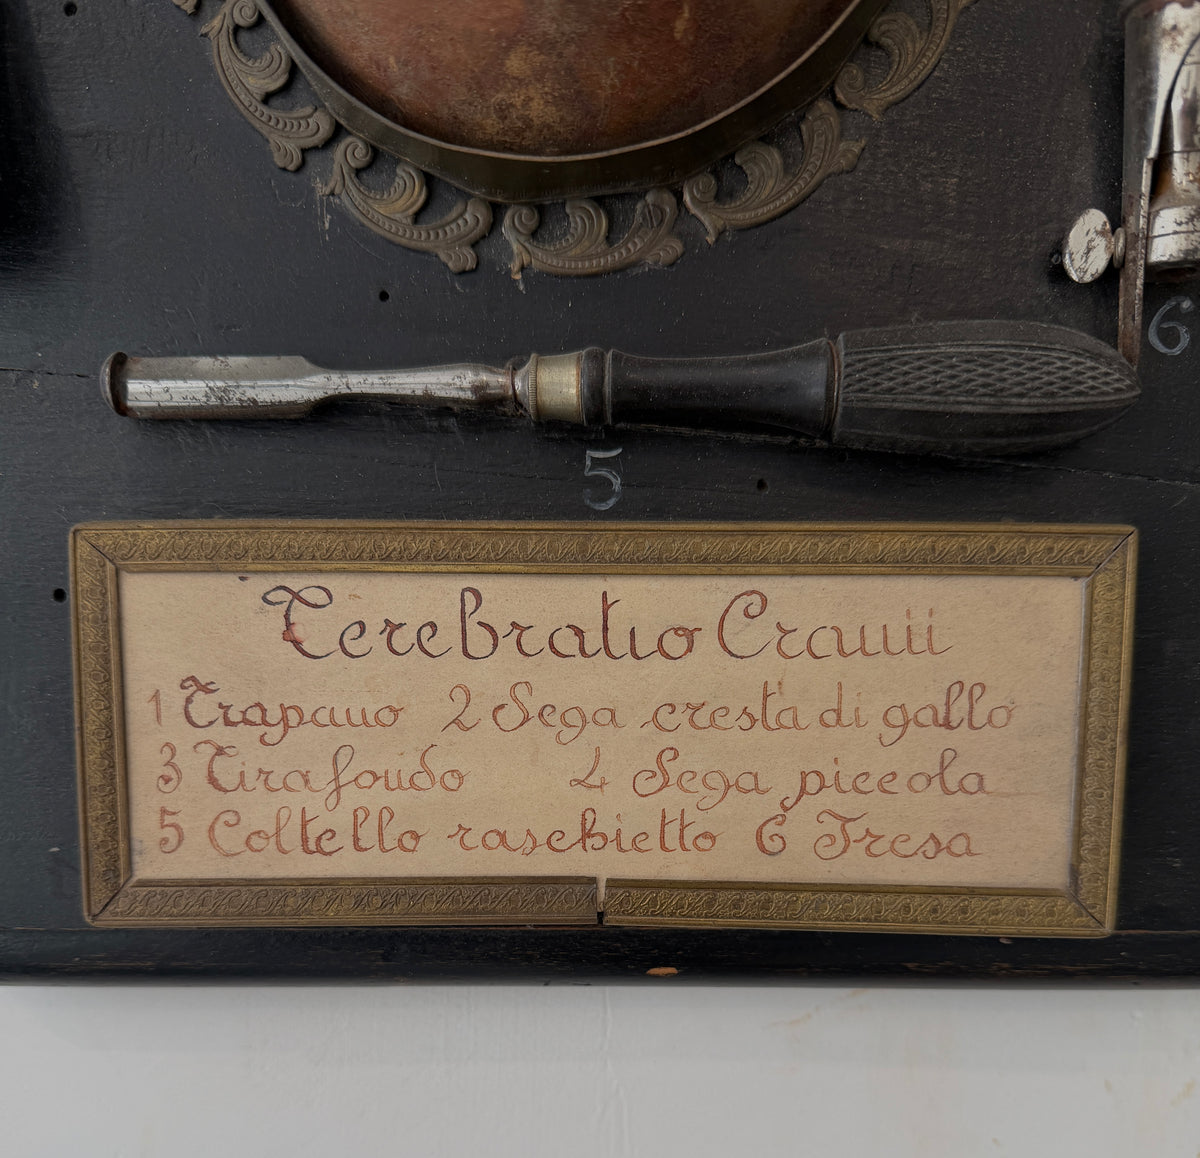 6
5
Terebratio Cranii
1 Trapano 2 Sega cresta di gallo
3 Tirafondo 4 Sega piccola
5 Coltello raschietto 6 Tresa